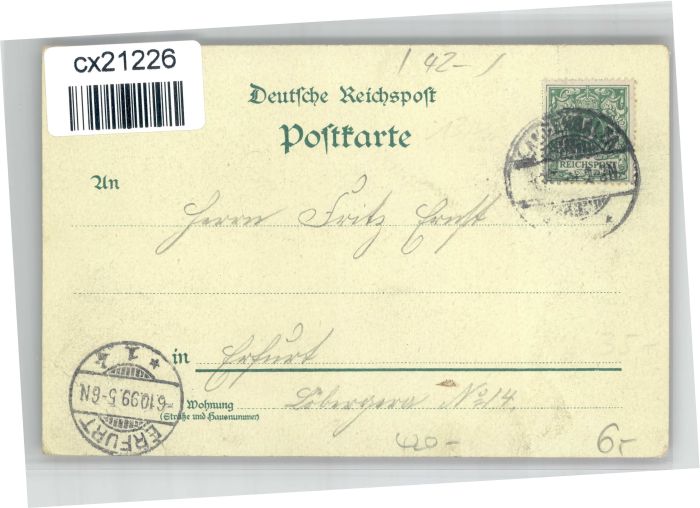 cx21226
( 42- )
Deutsche Reichspost
Postkarte
REICHSPOST
An
Herrn Fritz Ernst
in Erfurt
* 1 k
6.10.99.5-6N
ERFURT
Wohnung
(Straße und Hausnummer)
No 14.
420-
6,-